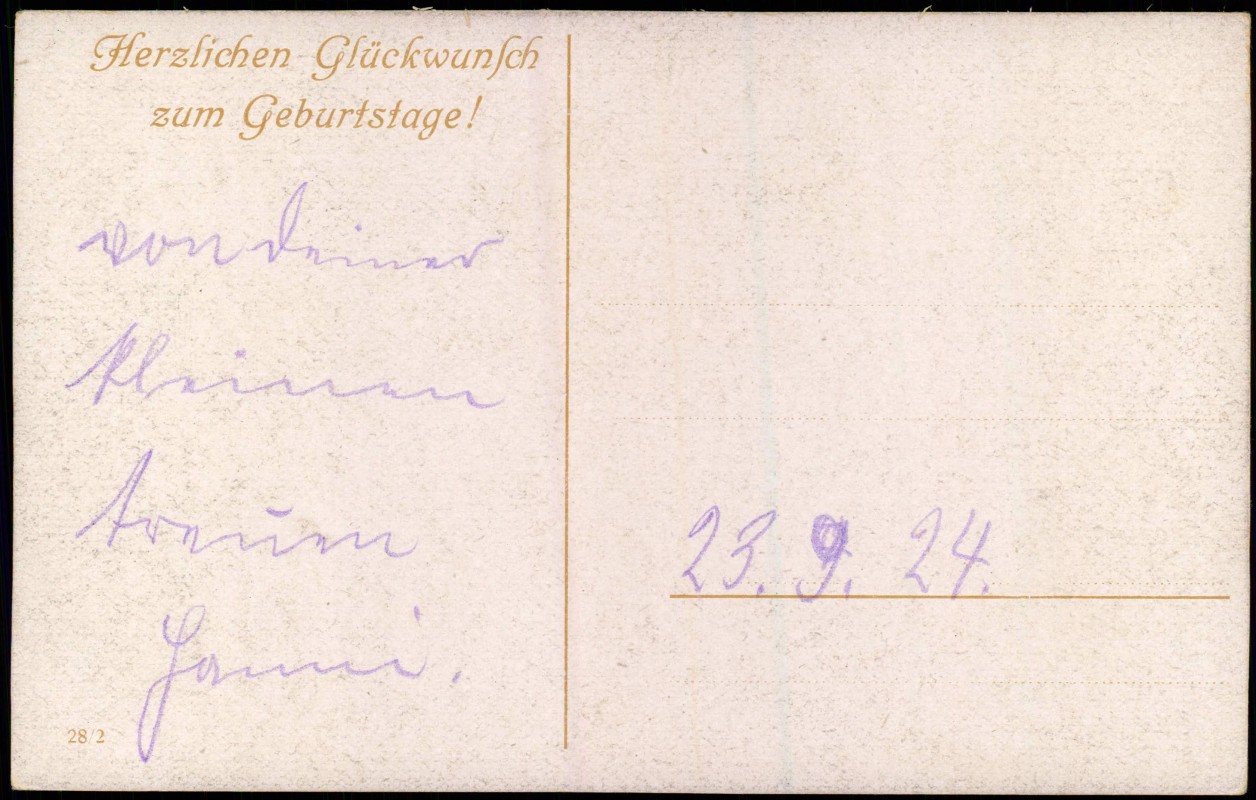 Herzlichen Glückwunſch
zum Geburtstage!
von Deiner
kleinen
treuen
Hanni.
23. 9. 24.
28/2